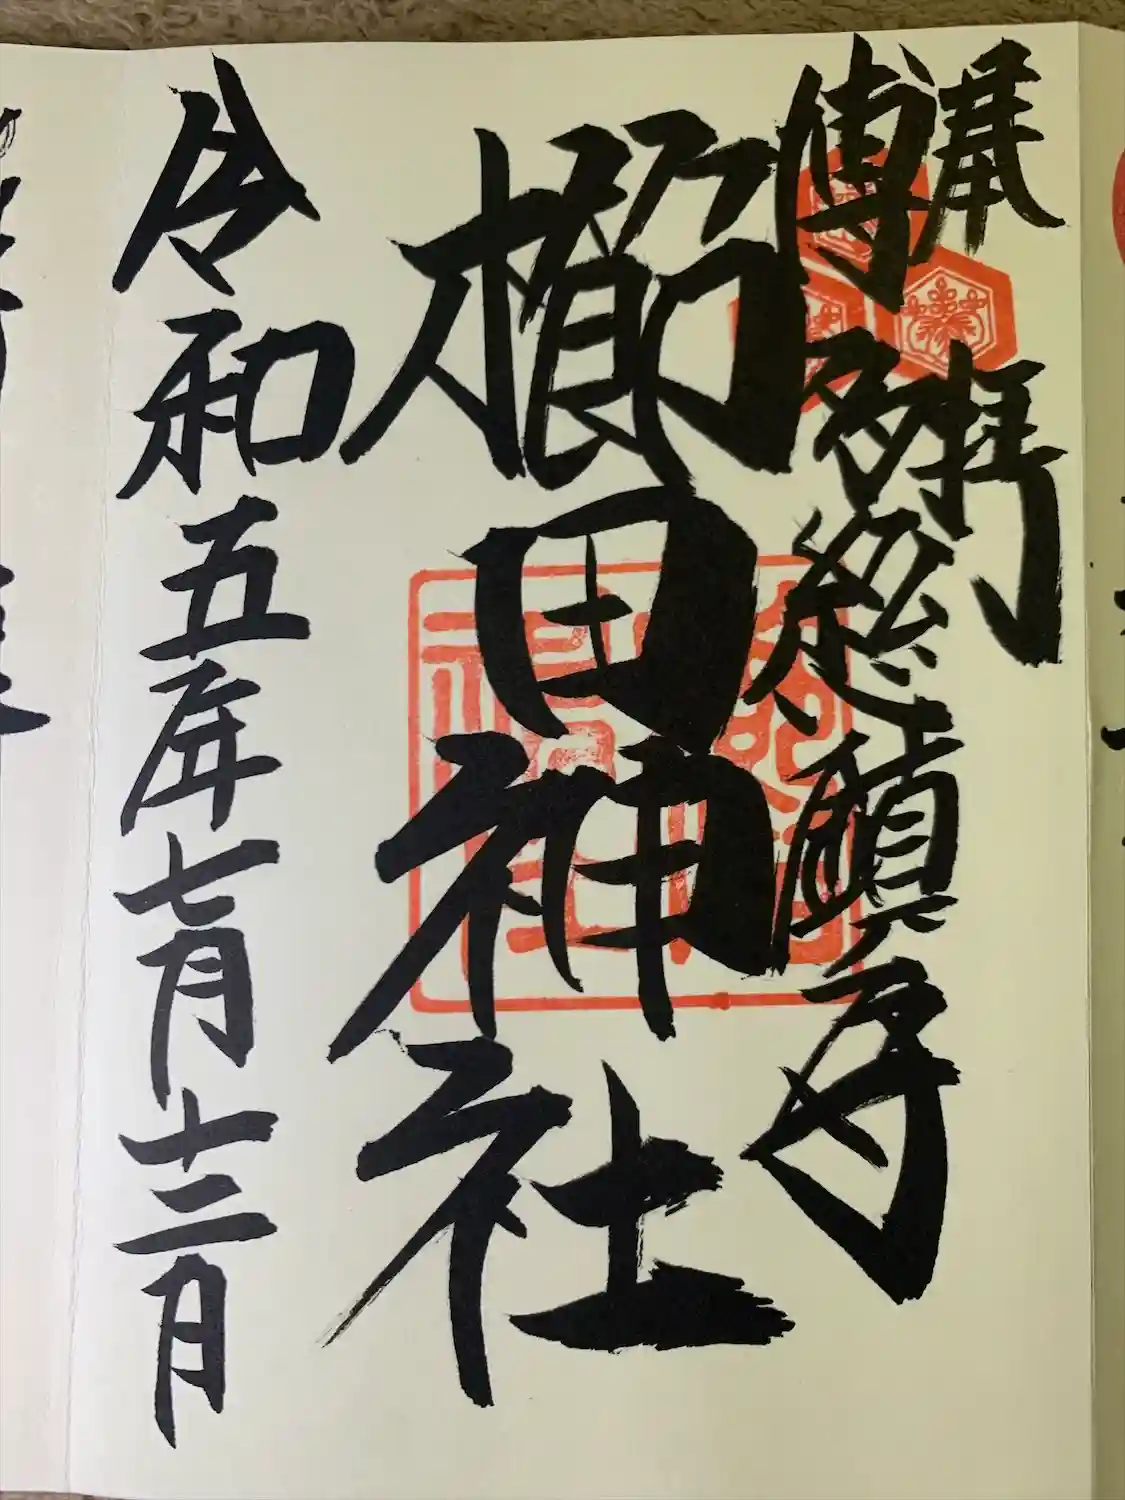 奉拝
博多総鎮守
櫛田神社
令和五年七月十二日